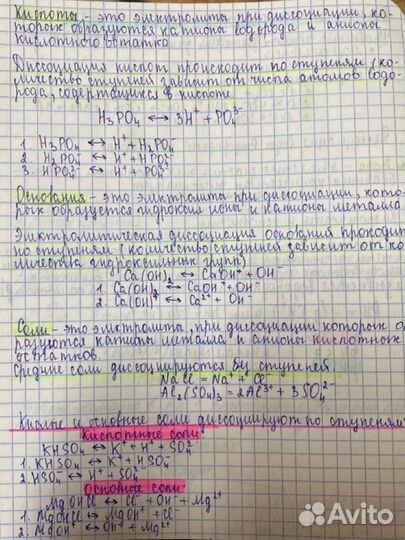 Кислоты - это электролиты при диссоциации, ко-
торых образуются катионы водорода и анионы
кислотного остатка
Диссоциация кислот происходит по ступеням (ко-
личество ступеней зависит от числа атомов водо-
рода, содержащихся в кислоте
H₃PO₄ ↔ 3H⁺ + PO₄³⁻
1. H₃PO₄ ↔ H⁺ + H₂PO₄
2. H₂PO₄⁻ ↔ H⁺ + HPO₄²⁻
3. HPO₄²⁻ ↔ H⁺ + PO₄³⁻
Основания - это электролиты при диссоциации, кото-
рых образуется гидроксил ионы и катионы металла
Электролитическая диссоциация оснований проходит
по ступеням (количество ступеней зависит от ко-
личества гидроксильных групп)
Ca(OH)₂ ↔ CaOH⁺ + OH⁻
1. Ca(OH)₂ ↔ CaOH⁺ + OH⁻
2. Ca(OH)⁺ ↔ Ca²⁺ + OH⁻
Соли - это электролиты, при диссоциации которых о
разуются катионы метала и анионы кислотных
остатков.
Средние соли диссоциируются без ступеней.
NaCl = Na⁺ + Cl⁻
Al₂(SO₄)₃ = 2Al³⁺ + 3SO₄²⁻
Кислые и основные соли диссоциируют по ступеням
Кислотные соли
KHSO₄ ↔ K⁺ + H⁺ + SO₄²⁻
1. KHSO₄ ↔ K⁺ + HSO₄⁻
2. HSO₄⁻ ↔ H⁺ + SO₄²⁻
Основные соли
MgOHCl ↔ Cl⁻ + OH⁻ + Mg²⁺
1. MgOHCl ↔ MgOH⁺ + Cl⁻
2. MgOH⁺ ↔ OH⁻ + Mg²⁺
Avito